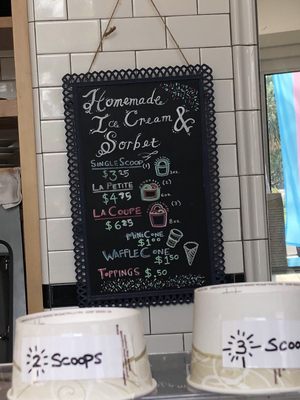 Homemade
Ice Cream &
Sorbet
Single Scoop
$3.25
3oz.
La Petite (2)
$4.95
La Coupe (3)
$6.85
8oz.
Mini Cone
$1.00
Waffle Cone
$1.50
Toppings $.50
2 Scoops
3 Scoo